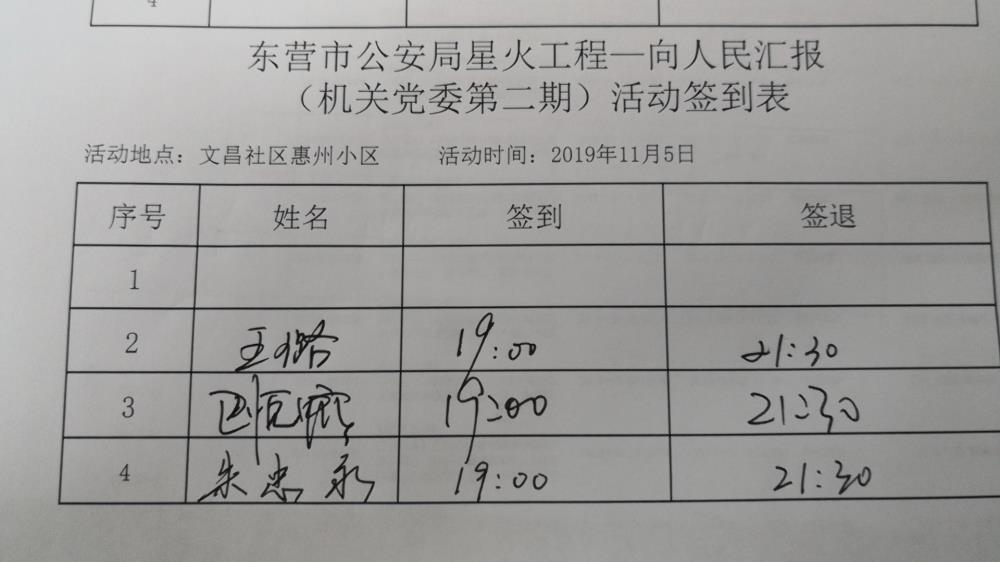 4
东营市公安局星火工程—向人民汇报
（机关党委第二期）活动签到表
活动地点：文昌社区惠州小区 活动时间：2019年11月5日
序号 姓名 签到 签退
1
2 王璐 19:00 21:30
3 19:00 21:30
4 朱忠永 19:00 21:30